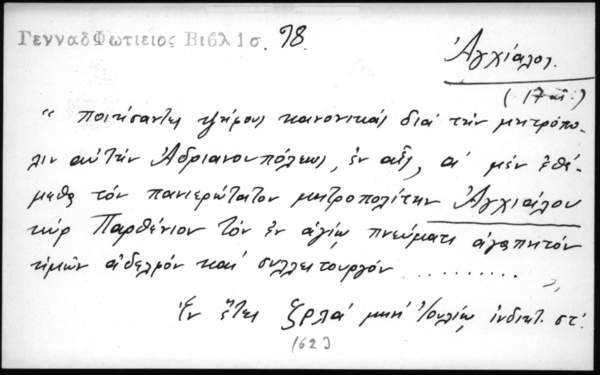 ΓενναδΦωτιειος Βιβλ 1 σ. 98.
Ἀγχίαλος.
(17 αἰ.)
“ ποιήσαντες ψήφους κανονικάς διά τήν μητρόπο-
λιν αὐτήν Ἀδριανουπόλεως, ἐν αἷς, α' μέν ἐθέ-
μεθα τόν πανιερώτατον μητροπολίτην Ἀγχιάλου
κύρ Παρθένιον τόν ἐν ἁγίῳ πνεύματι ἀγαπητόν
ἡμῶν ἀδελφόν καί συλλειτουργόν .......... ”,
Ἐν ἔτει ζρλα' μηνί Ἰουλίῳ ἰνδικτ. στ'.
1623